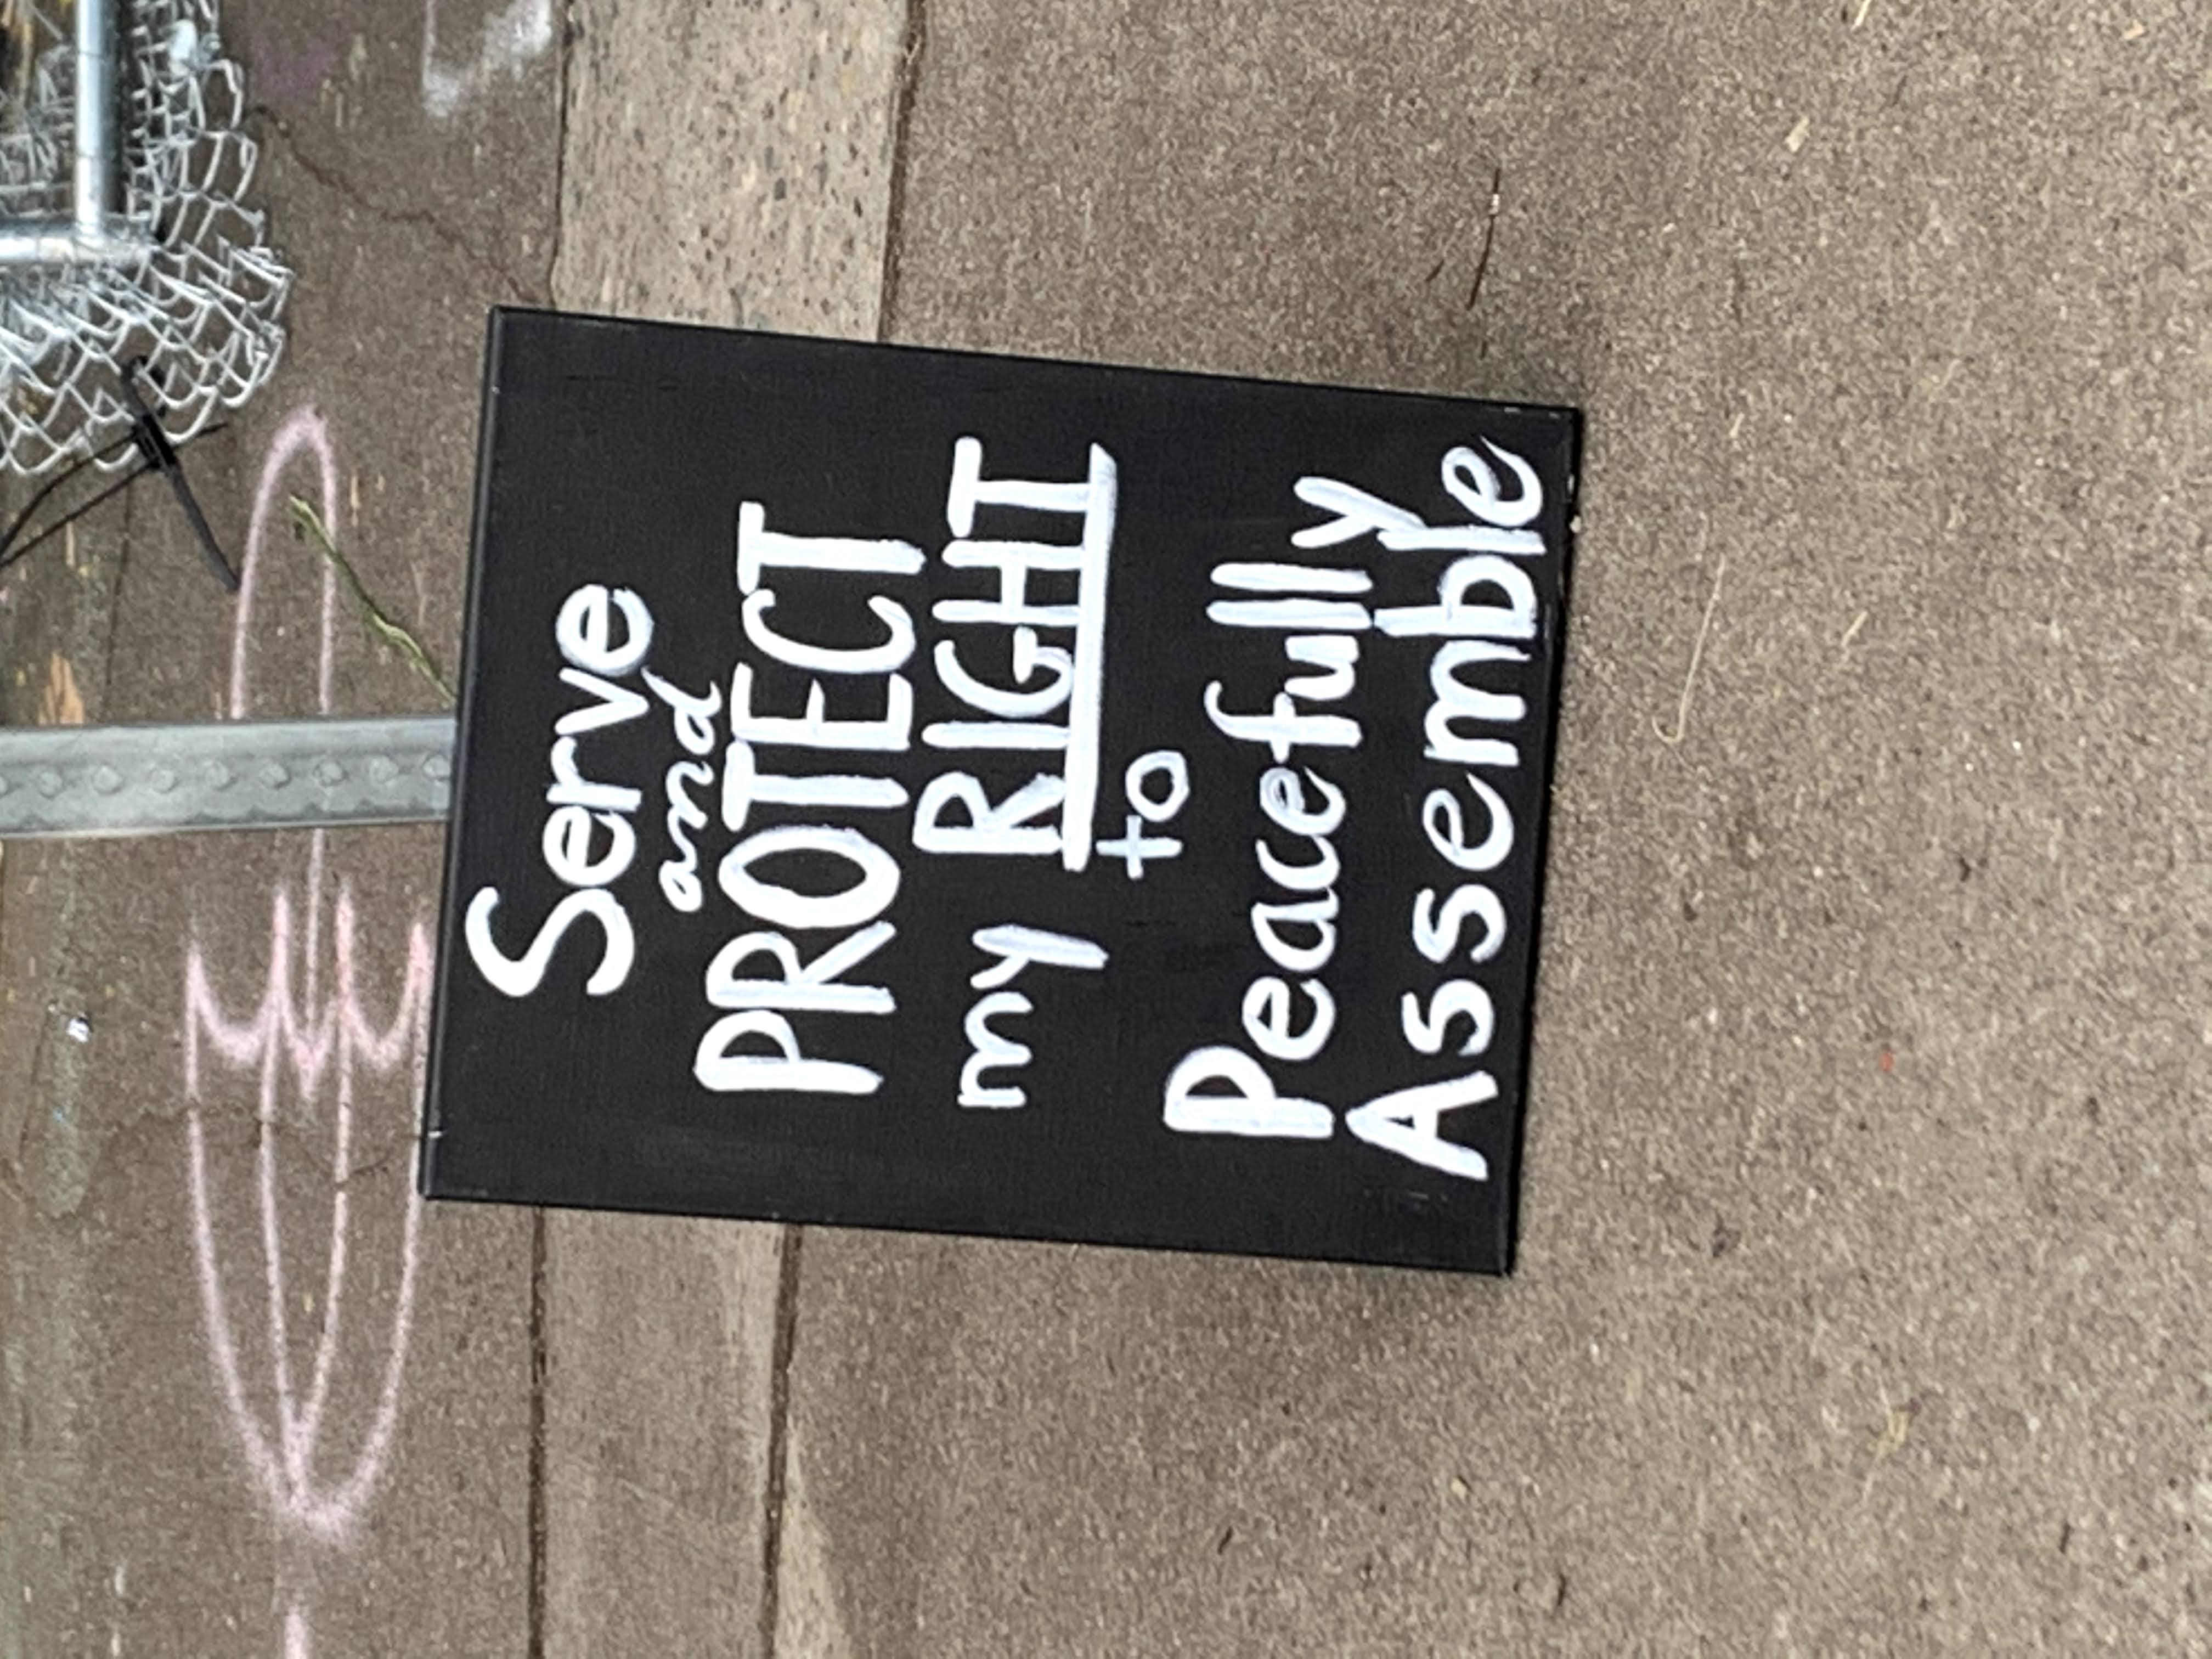 Serve
and
PROTECT
my RIGHT
to
Peacefully
Assemble